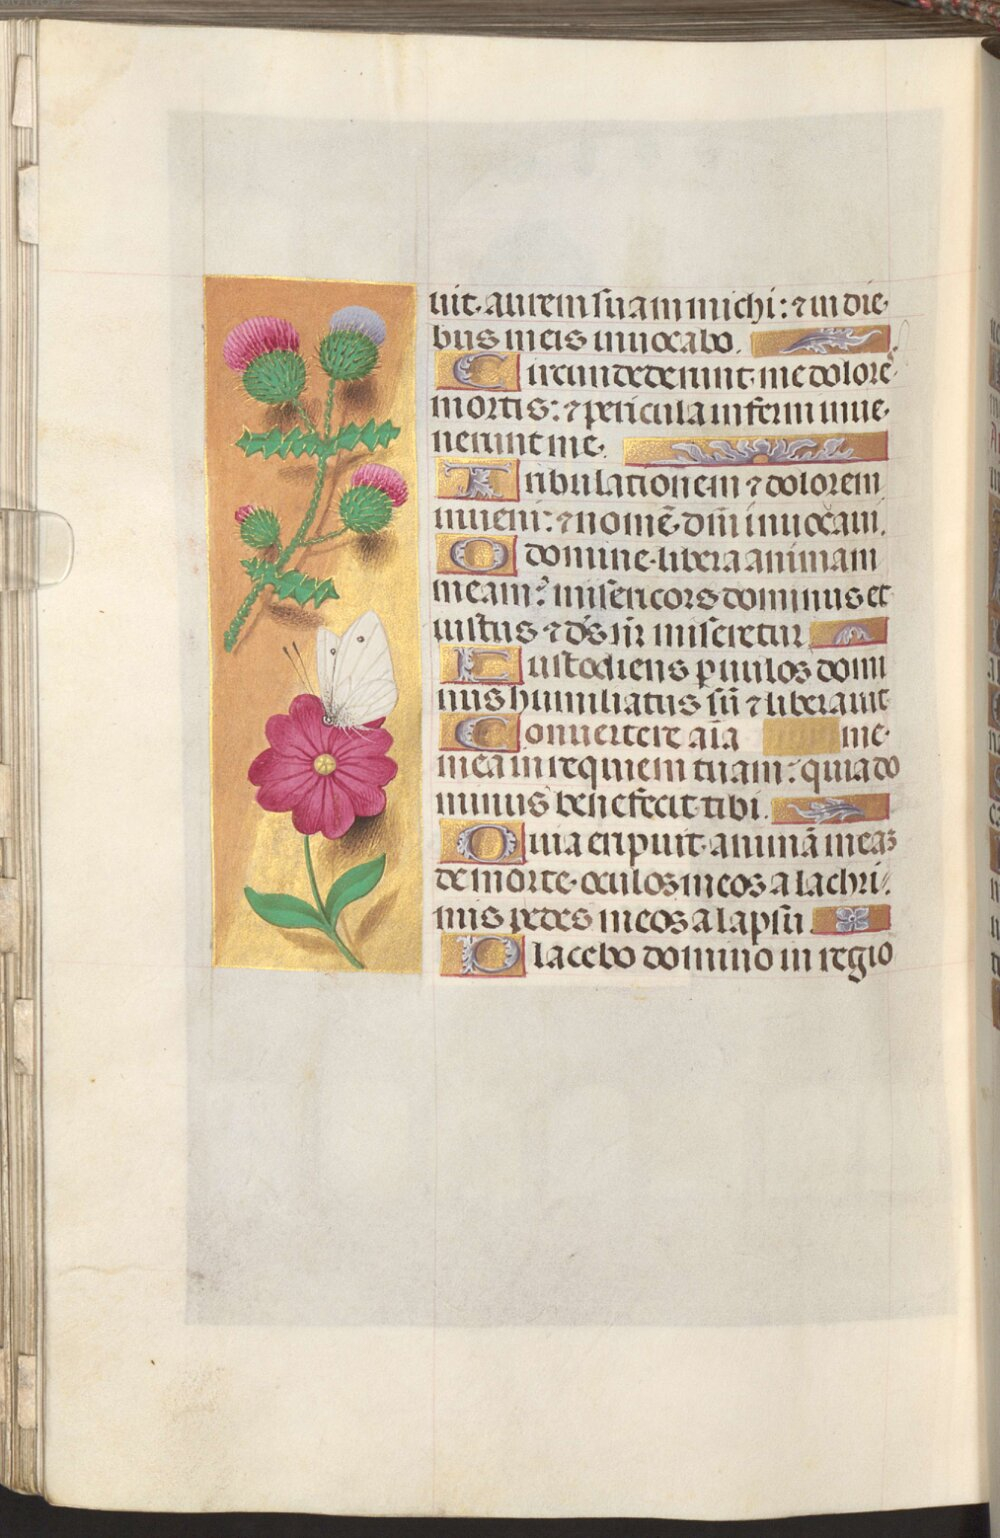 uit aurem suam michi: ⁊ in die
bus meis inuocabo.
Circumdederunt me dolore
mortis: ⁊ pericula inferni inue
nerunt me.
Tribulationem ⁊ dolorem
inueni: ⁊ nomē dn̄i inuocaui.
O domine libera animam
meam: misericors dominus et
iustus ⁊ d̄s n̄r miseretur
Custodiens paruulos domi
nus humiliatus sū ⁊ liberauit
Conuertere aīa me
mea in requiem tuam: quia do
minus benefecit tibi.
Quia eripuit animā meaꝫ
de morte oculos meos a lachri
mis pedes meos a lapsu
Placebo domino in regio